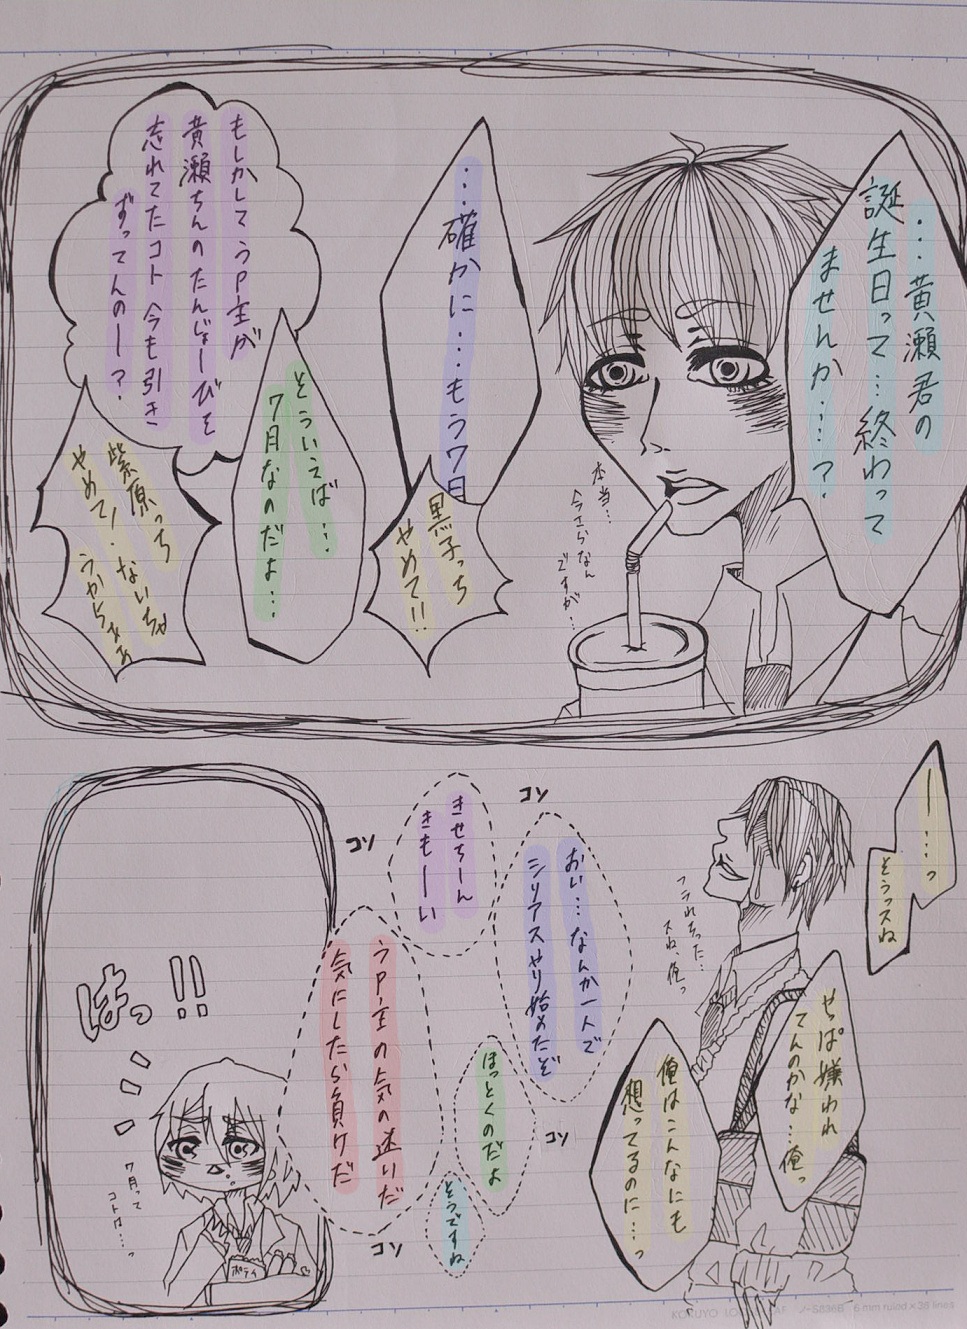 …黄瀬君の
誕生日って…終わって
ませんか…?
本当…
今さらなん
ですが…
…確かに…もう7日
黒子っち
やめて!!
もしかしてうp主が
黄瀬ちんのたんじょーびを
忘れてたコト今も引き
ずってんのー?
そういえば…
7月なのだよ…
紫原っち
やめて!ないちゃ
うからぁぁ
ー…っ
そうっスね
フラれちった…
スね、俺っ
せっぱ嫌われ
てんのかな…俺っ
俺はこんなにも
想ってるのに…っ
コソ
おい…なんか一人で
シリアスやり始めたぞ
きせちーん
きもーい
コソ
ほっとくのだよ
コソ
うp主の気の迷いだ
気にしたら負けだ
そうですね
コソ
はっ!!
7月って
コトは…っ
ポテイ
KOKUYO LOOSE-LEAF ノ-S836B 6 mm ruled×36 lines